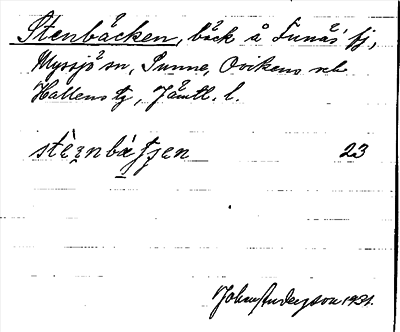 Stenbäcken, bäck å Funäs fj,
Myssjö sn, Sunne, Ovikens och
Hallens tg, Jämtl. l.
stèɪ̯nbàʄʄen 23
John Anderson 1931.